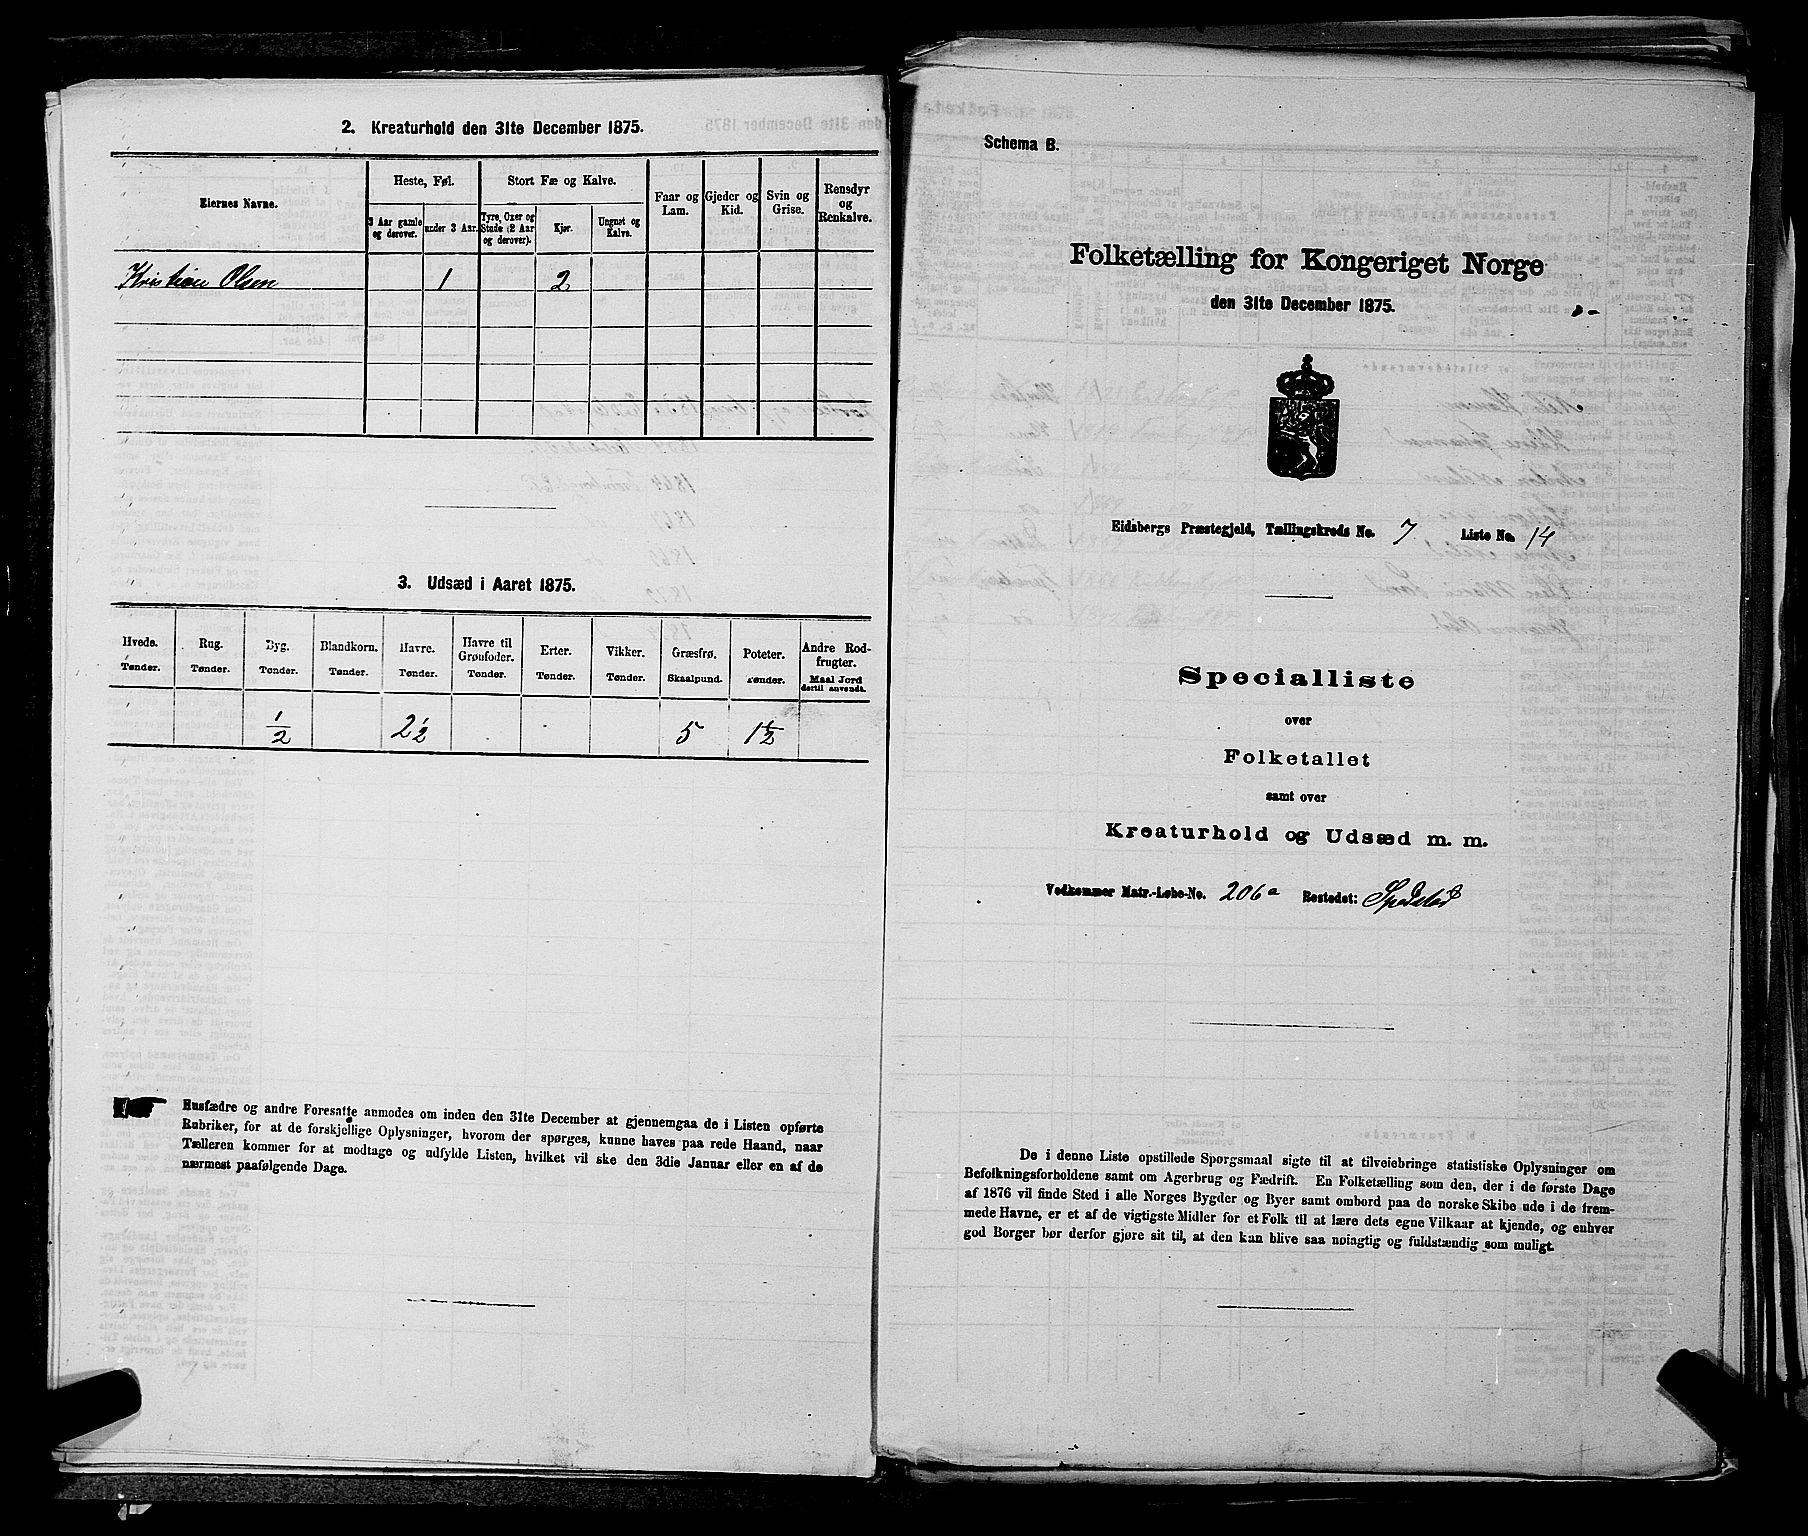 2. Kreaturhold den 31te December 1875.
Eiernes Navne.
Heste, Føl.
Stort Fæ og Kalve.
Faar og Lam.
Gjeder og Kid.
Svin og Grise.
Rensdyr og Renkalve.
3 Aar gamle og derover.
under 3 Aar.
Tyre, Oxer og Stude (2 Aar og derover).
Kjør.
Ungnøt og Kalve.
Kristian Olsen 1 2
3. Udsæd i Aaret 1875.
Hvede. Rug. Byg. Blandkorn. Havre. Havre til Grønfoder. Erter. Vikker. Græsfrø. Poteter. Andre Rodfrugter.
Tønder. Tønder. Tønder. Tønder. Tønder. Tønder. Tønder. Tønder. Skaalpund. Tønder. Maal Jord dertil anvendt.
1/2 2 1/2 5 1 1/2
Husfædre og andre Foresatte anmodes om inden den 31te December at gjennemgaa de i Listen opførte
Rubriker, for at de forskjellige Oplysninger, hvorom der spørges, kunne haves paa rede Haand, naar
Tælleren kommer for at modtage og udfylde Listen, hvilket vil ske den 3die Januar eller en af de
nærmest paafølgende Dage.
Schema B.
Folketælling for Kongeriget Norge
den 31te December 1875.
Eidsbergs Præstegjeld, Tællingskreds No. 7 Liste No. 14
Specialliste
over
Folketallet
samt over
Kreaturhold og Udsæd m. m.
Vedkommer Matr.-Løbe-No. 206a Bostedet: Spødstød
De i denne Liste opstillede Spørgsmaal sigte til at tilveiebringe statistiske Oplysninger om
Befolkningsforholdene samt om Agerbrug og Fædrift. En Folketælling som den, der i de første Dage
af 1876 vil finde Sted i alle Norges Bygder og Byer samt ombord paa de norske Skibe ude i de frem-
mede Havne, er et af de vigtigste Midler for et Folk til at lære dets egne Vilkaar at kjende, og enhver
god Borger bør derfor gjøre sit til, at den kan blive saa nøiagtig og fuldstændig som muligt.